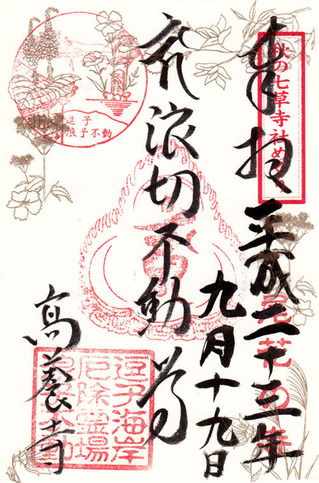 奉拝 平成二十三年
九月十九日
浪切不動尊
高養寺
秋の七草寺社めぐり
逗子
浪子不動
逗子海岸
厄除霊場